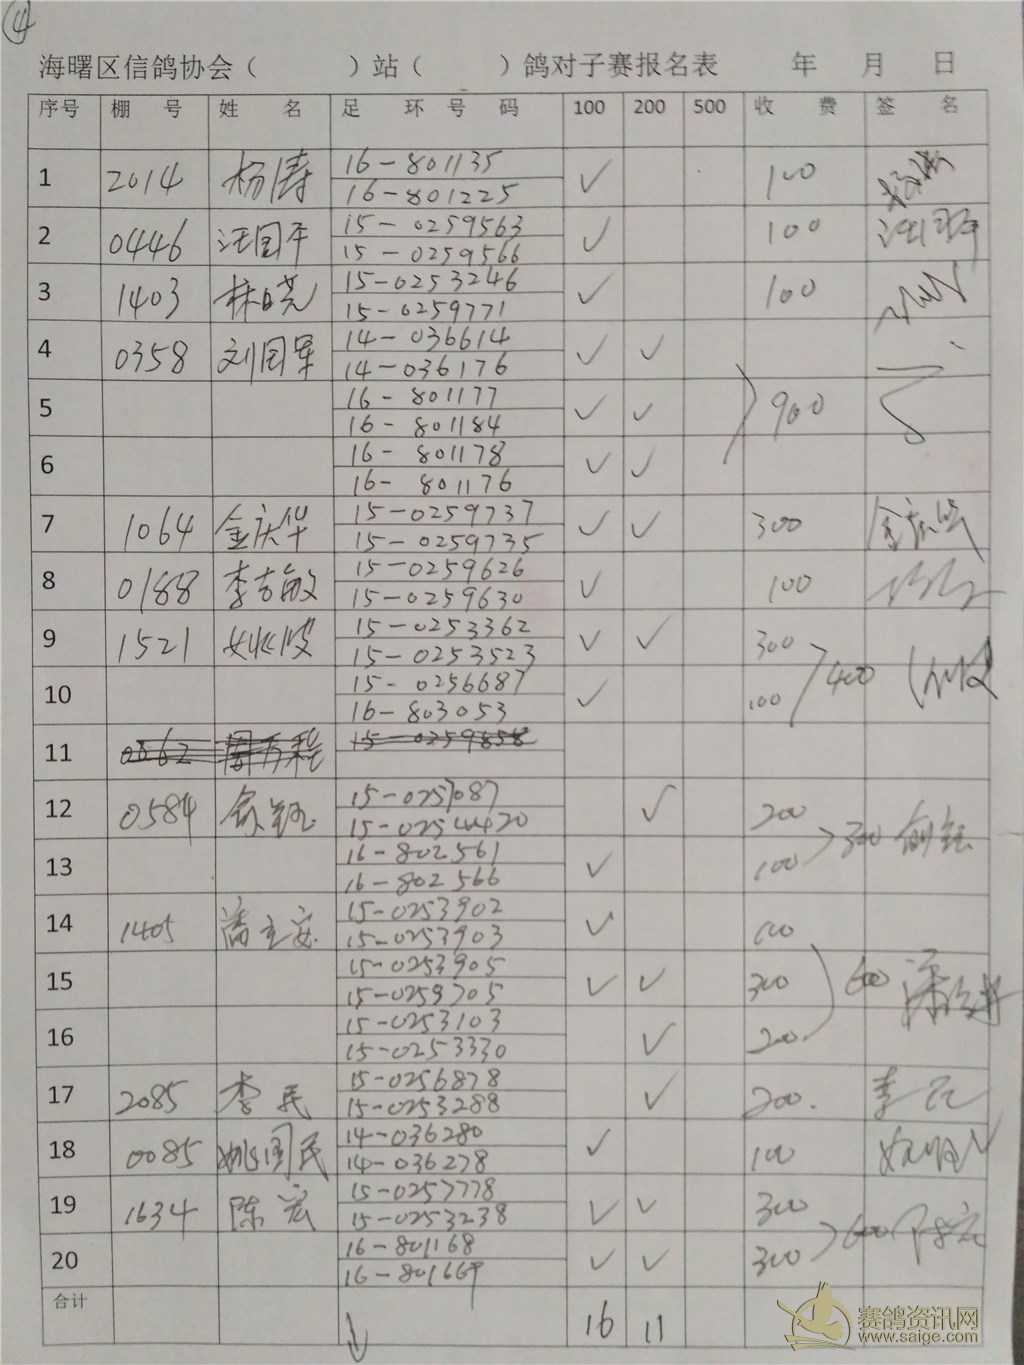 ④
海曙区信鸽协会（ ）站（ ）鸽对子赛报名表 年 月 日
序号 棚 号 姓 名 足 环 号 码 100 200 500 收 费 签 名
1 2014 杨涛 16-801135 ✓ 100
16-801225
2 0446 汪国平 15-0259563 ✓ 100 汪国平
15-0259566
3 1403 林晓 15-0253246 ✓ 100
15-0259771
4 0358 刘国军 14-036614 ✓ ✓
14-036176
5 16-801177 ✓ ✓ 900
16-801184
6 16-801178 ✓ ✓
16-801176
7 1064 金庆华 15-0259737 ✓ ✓ 300 金庆华
15-0259735
8 0188 李吉敏 15-0259626 ✓ 100
15-0259630
9 1521 15-0253362 ✓ ✓ 300
15-0253523
10 15-0256687 ✓ 100 400
16-803053
11 0862 15-0259858
12 0584 俞钰 15-0257087 ✓ 200
15-0254420
13 16-802561 ✓ 100 300 俞钰
16-802566
14 1405 15-0253902 ✓ 100
15-0253903
15 15-0253905 ✓ ✓ 300 600
15-0259705
16 15-0253103 ✓ 200
15-0253330
17 2085 李民 15-0256878 ✓ 200. 李民
15-0253288
18 0085 姚国民 14-036280 ✓ 100
14-036278
19 1634 陈宏 15-0257778 ✓ ✓ 300
15-0253238
20 16-801168 ✓ ✓ 300 600 陈宏
16-801669
合计 16 11
赛鸽资讯网
www.saige.com